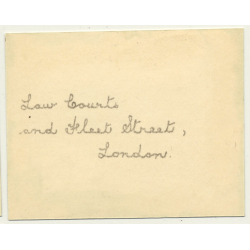 Law Courts
and Fleet Street,
London.